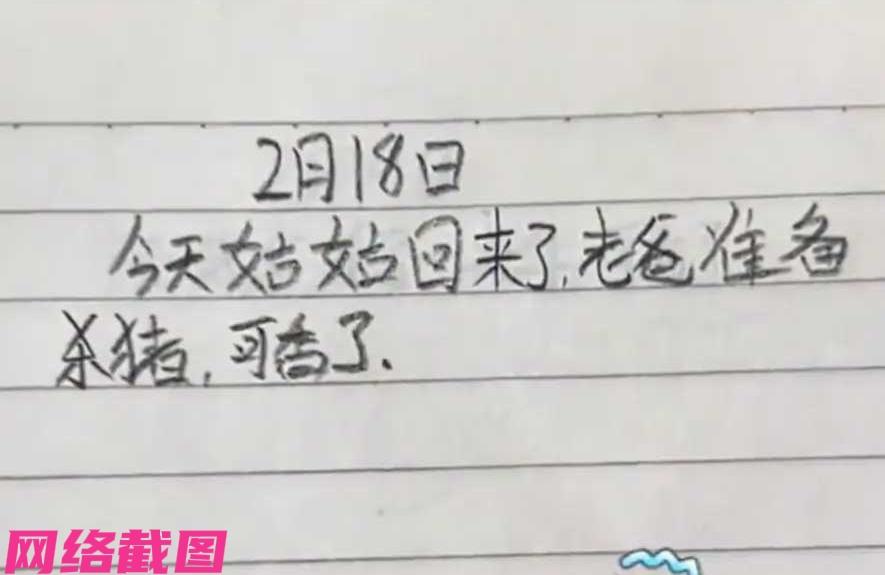 2月18日
今天姑姑回来了,老爸准备
杀猪,可香了.
网络截图